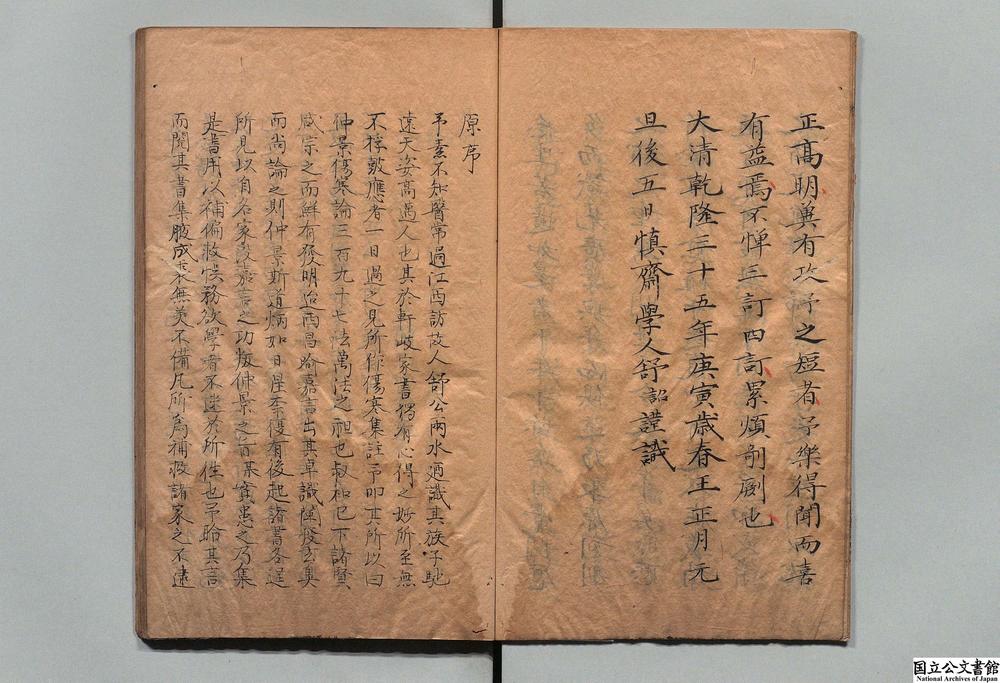 正高明兾有攻予之短者予樂得聞而喜
有益焉不憚三訂四訂累煩剞劂也
大清乾隆三十五年庚寅歳春王正月元
旦後五日慎齋學人舒詔謹識
原序
予素不知醫常過江西訪故人舒公兩水廼識其族子馳
遠天姿高邁人也其於軒岐家書獨有心得之妙所至無
不桴皷應者一日過之見所作傷寒集註予叩其所以曰
仲景傷寒論三百九十七法萬法之祖也叔和已下諸賢
咸宗之而鮮有發明迨西昌喻嘉言出其卓識陳發玄奥
而尚論之則仲景斯道炳如日星柰復有後起諸書各逞
所見以自名家没嘉言之功叛仲景之旨某竊患之乃集
是書用以補偏救悞務欲學者不迷於所徃也予聆其言
而閱其書集腋成裘無美不備凡所為補救諸家之不逮
国立公文書館
National Archives of Japan